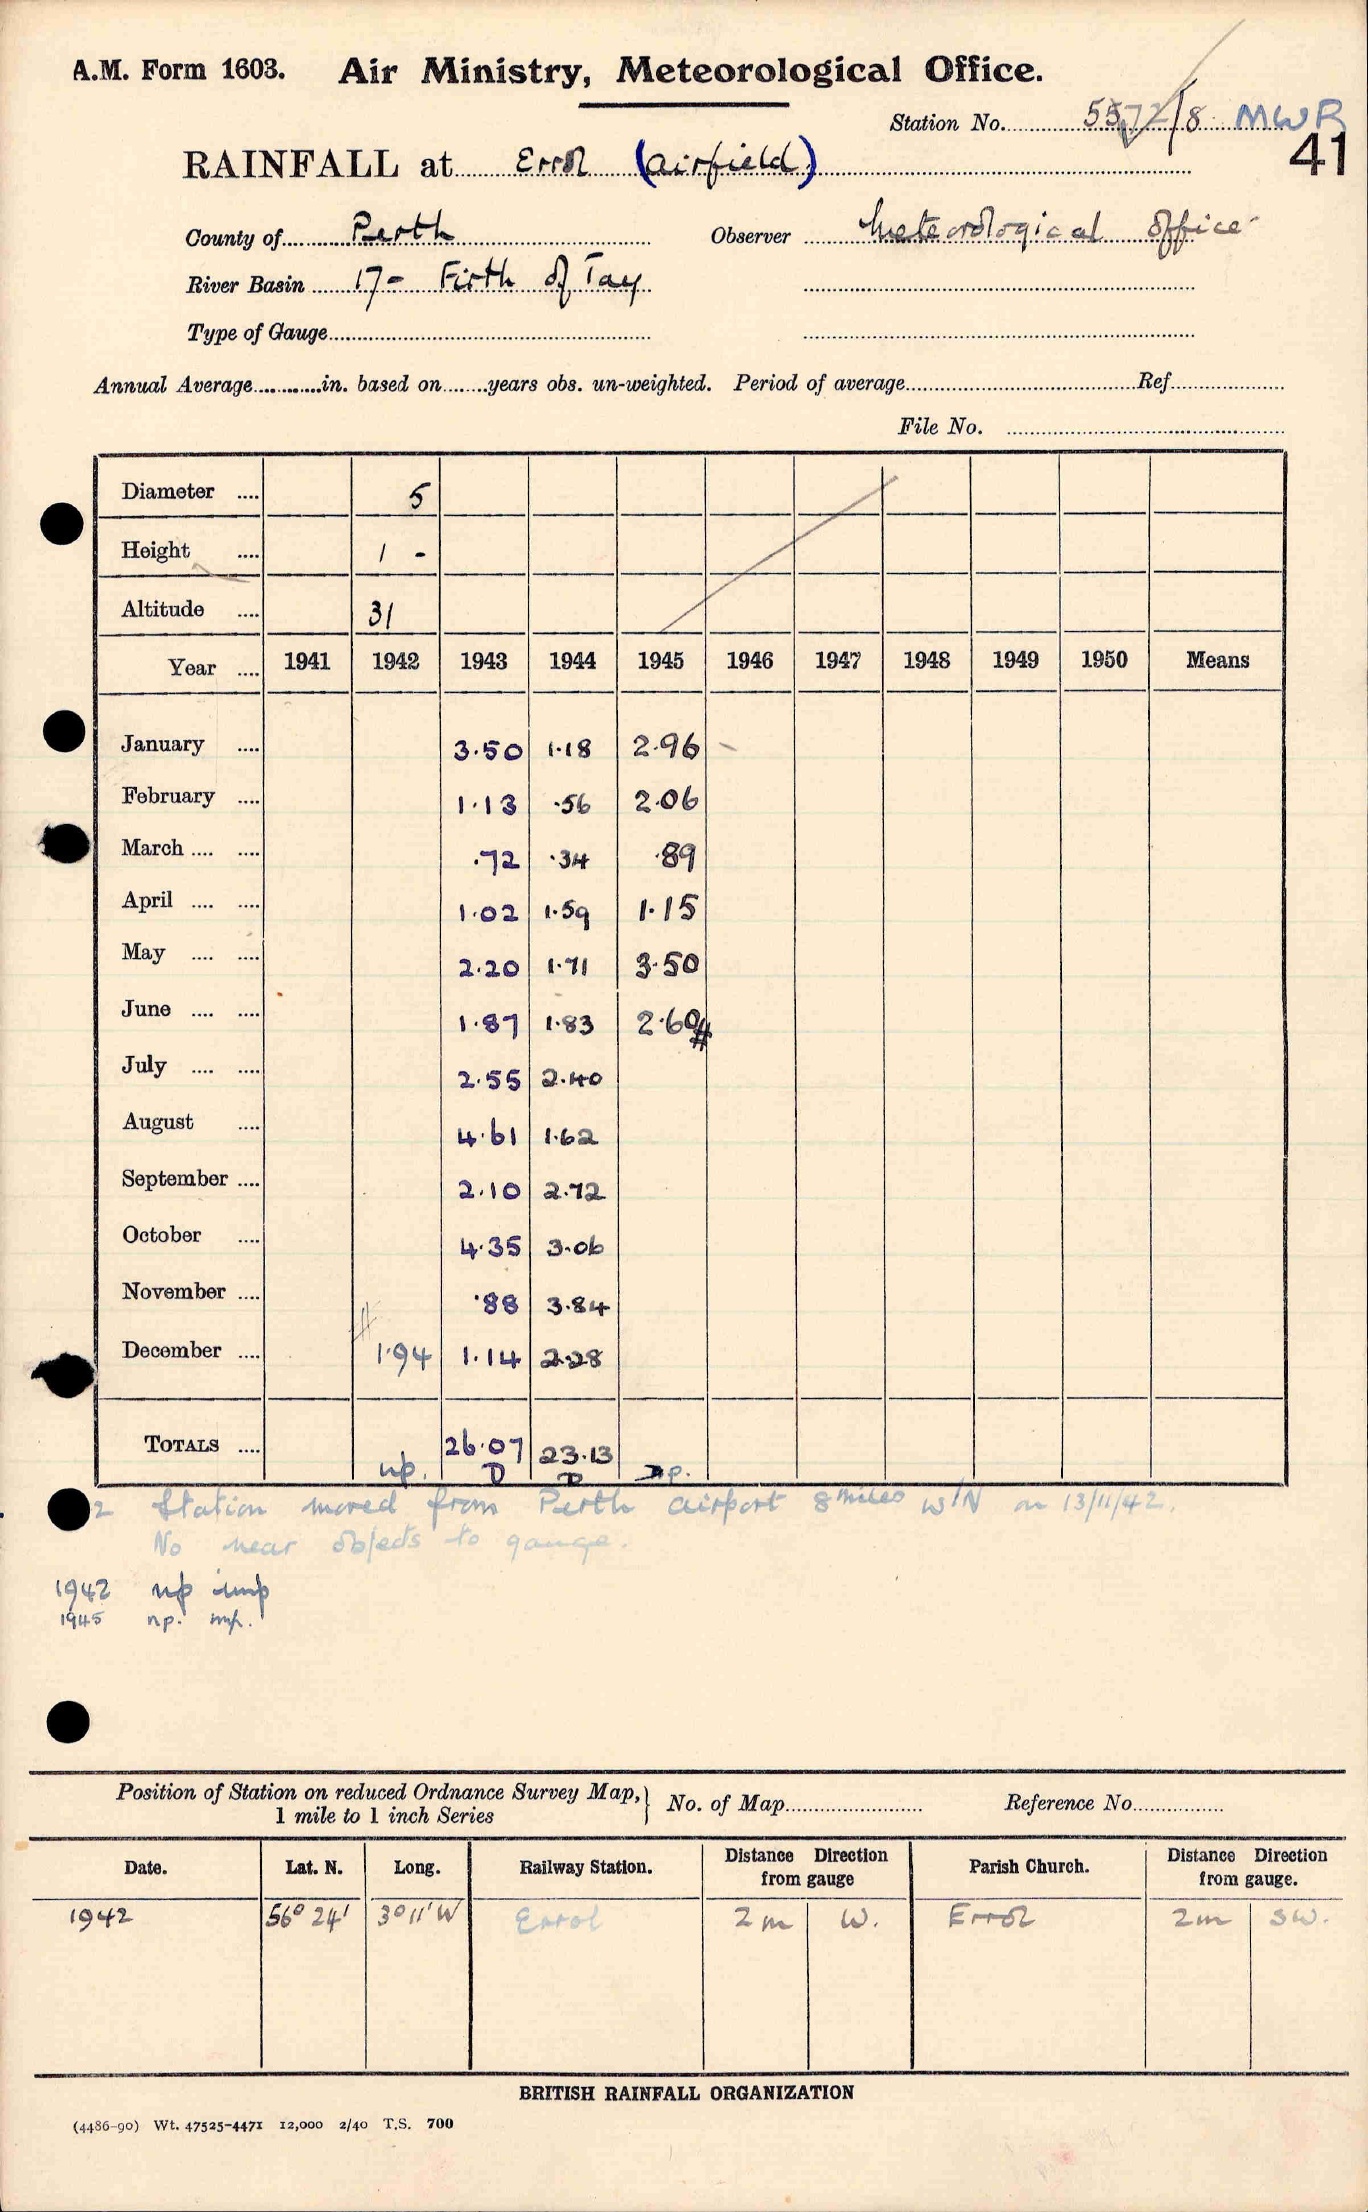 A.M. Form 1603. Air Ministry, Meteorological Office.
Station No. 5572/8 MWR
41
RAINFALL at Errol (airfield)
County of Perth Observer Meteorological Office
River Basin 17- Firth of Tay
Type of Gauge
Annual Average in. based on years obs. un-weighted. Period of average Ref.
File No.
Diameter 5
Height 1 -
Altitude 31
Year 1941 1942 1943 1944 1945 1946 1947 1948 1949 1950 Means
January 3.50 1.18 2.96 -
February 1.13 .56 2.06
March .72 .34 .89
April 1.02 1.59 1.15
May 2.20 1.71 3.50
June 1.87 1.83 2.60 #
July 2.55 2.40
August 4.61 1.62
September 2.10 2.72
October 4.35 3.06
November .88 3.84
December # 1.94 1.14 2.28
TOTALS 26.07 23.13
np. D D np.
2 Station moved from Perth airport 8 miles W'N on 13/11/42.
No near objects to gauge.
1942 np imp
1945 np. imp.
Position of Station on reduced Ordnance Survey Map, 1 mile to 1 inch Series } No. of Map Reference No.
Date. Lat. N. Long. Railway Station. Distance Direction from gauge Parish Church. Distance Direction from gauge.
1942 56° 24' 3° 11' W Errol 2 m W. Errol 2m SW.
BRITISH RAINFALL ORGANIZATION
(4486-90) Wt. 47525-4471 12,000 2/40 T.S. 700